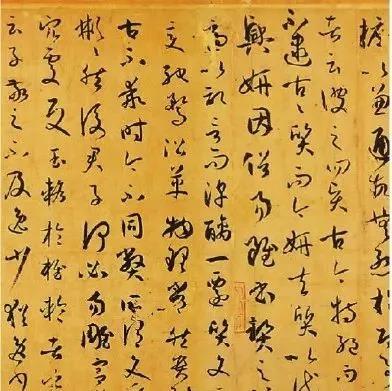 摭以兼通故無慚於即
者云彼之四賢古今特絕而
不逮古古質而今妍夫質以代
興妍因俗易雖書契之
適以記言而淳醨一遷質文
三變馳騖沿革物理常然貴
古不乖時今不同弊所謂文
彬彬然後君子何必易雕宮
穴處反玉輅於椎輪者乎
云子敬之不及逸少猶逸少